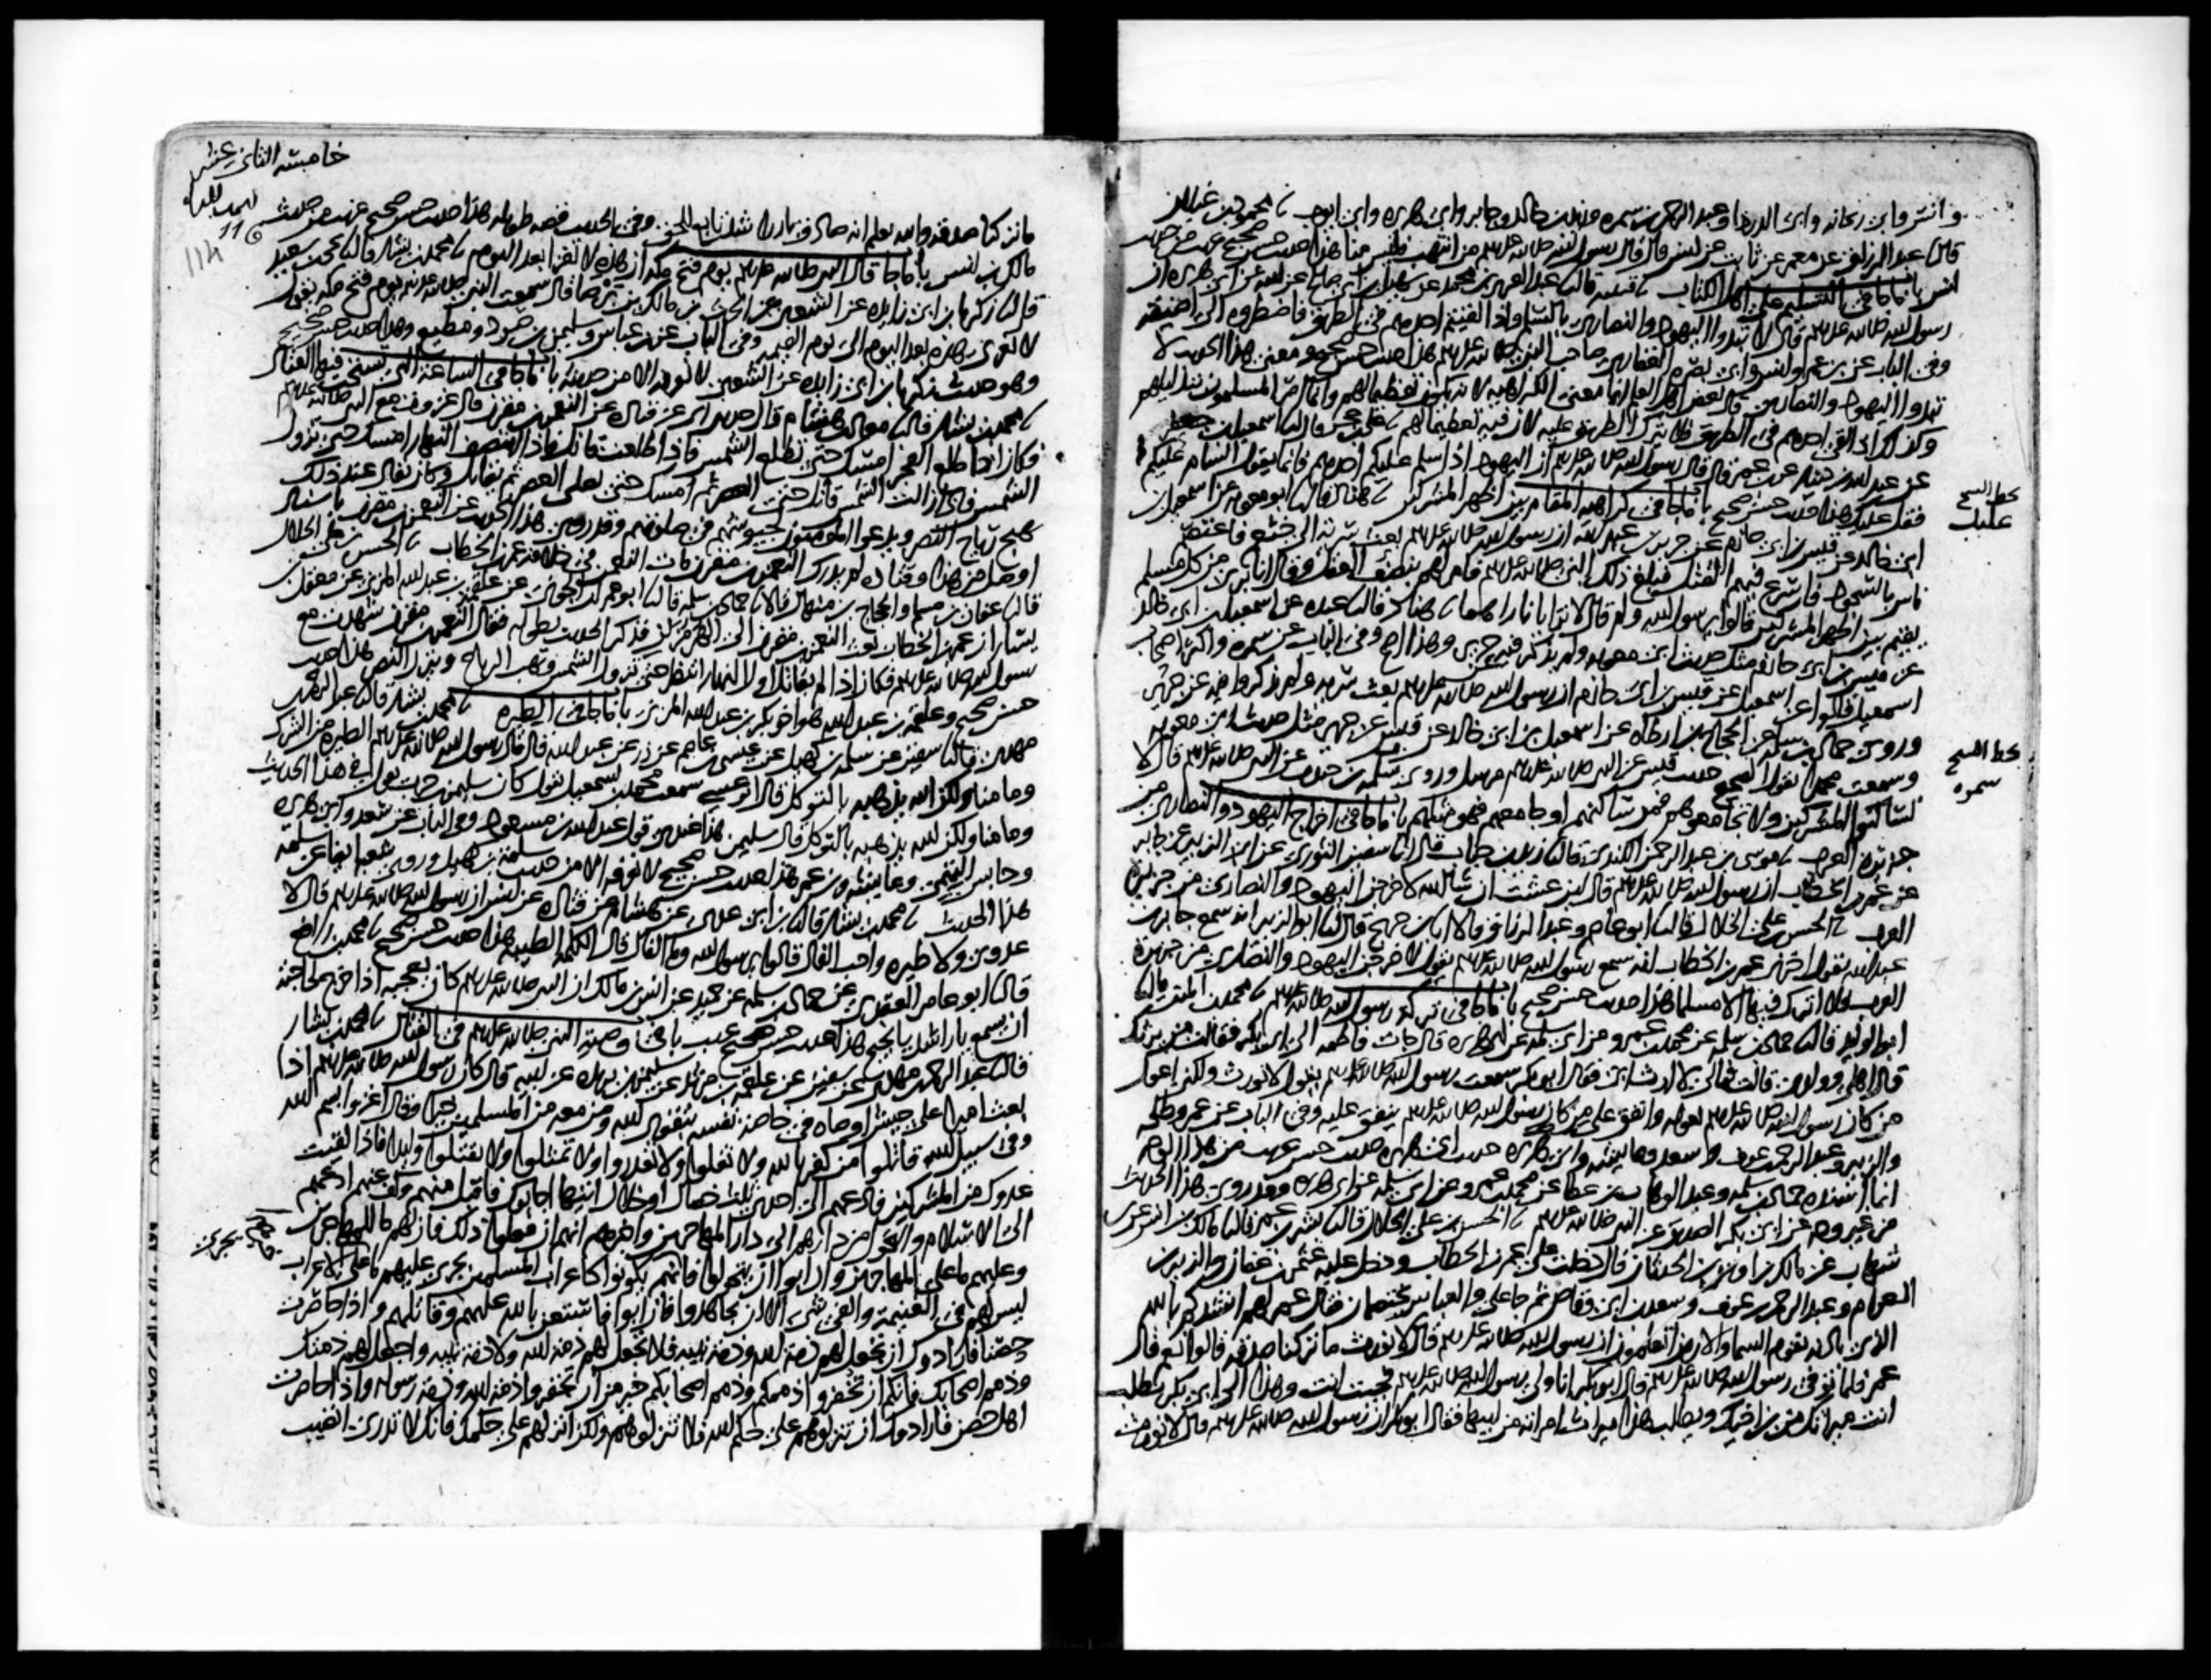 وانس وابي ريحانه وابي الدرداء وعبد الرحمن بن سمره وزيد بن خالد وجابر وابي هريره وابي ايوب نا محمود بن غيلان
قال نا عبد الرزاق عن معمر عن ثابت عن انس قال قال رسول الله صلى الله عليه وسلم من انتهب فليس منا هذا حديث حسن صحيح غريب من حديث
انس باب ما جا في التسليم على اهل الكتاب نا قتيبه قال نا عبد العزيز بن محمد عن سهيل بن ابي صالح عن ابيه عن ابي هريره ان
رسول الله صلى الله عليه وسلم قال لا تبدوا اليهود والنصارى بالسلام واذا لقيتم احدهم في الطريق فاضطروه الى اضيقه
وفي الباب عن ابن عمر وانس وابي بصره الغفاري صاحب النبي صلى الله عليه وسلم هذا حديث حسن صحيح ومعنى هذا الحديث لا
تبدوا اليهود والنصارى قال بعض اهل العلم انما معنى الكراهيه لانه يكون تعظيما لهم وانما امر المسلمون بتذليلهم
وكذلك اذا لقي احدهم في الطريق فلا يترك الطريق عليه لان فيه تعظيما لهم نا علي بن حجر قال نا اسمعيل بن جعفر
عن عبد الله بن دينار عن ابن عمر قال قال رسول الله صلى الله عليه وسلم ان اليهود اذا سلم عليكم احدهم فانما يقول السام عليكم
فقل عليك هذا حديث حسن صحيح باب ما جا في كراهيه المقام بين اظهر المشركين نا هناد قال نا ابو معويه عن اسمعيل بن
بخط الشيخ
عليك
ابي خالد عن قيس بن ابي حازم عن جرير بن عبد الله ان رسول الله صلى الله عليه وسلم بعث سريه الى خثعم فاعتصم
ناس بالسجود فاسرع فيهم القتل فبلغ ذلك النبي صلى الله عليه وسلم فامر لهم بنصف العقل وقال انا بري من كل مسلم
يقيم بين اظهر المشركين قالوا يرسول الله ولم قال لا ترايا ناراهما نا هناد قال نا عبده عن اسمعيل بن ابي خالد
عن قيس بن ابي حازم مثل حديث ابي معويه ولم يذكر فيه عن جرير وهذا اصح وفي الباب عن سمره واكثر اصحاب
اسمعيل قالوا عن اسمعيل عن قيس بن ابي حازم ان رسول الله صلى الله عليه وسلم بعث سريه ولم يذكروا فيه عن جرير
وروى حماد بن سلمه عن الحجاج بن ارطاه عن اسمعيل بن ابي خالد عن قيس عن جرير مثل حديث ابي معويه
وسمعت محمدا يقول الصحيح حديث قيس عن النبي صلى الله عليه وسلم مرسل وروى سمره بن جندب عن النبي صلى الله عليه وسلم قال لا
بخط الشيخ
سمره
تساكنوا المشركين ولا تجامعوهم فمن ساكنهم او جامعهم فهو مثلهم باب ما جا في اخراج اليهود والنصارى من
جزيره العرب نا موسى بن عبد الرحمن الكندي قال نا زيد بن حباب قال انا سفين الثوري عن ابي الزبير عن جابر
عن عمر بن الخطاب ان رسول الله صلى الله عليه وسلم قال لين عشت ان شا الله لاخرجن اليهود والنصارى من جزيره
العرب نا الحسن بن علي الخلال قال نا ابو عاصم وعبد الرزاق قالا انا ابن جريج قال نا ابو الزبير انه سمع جابر بن
عبد الله يقول اخبرني عمر بن الخطاب انه سمع رسول الله صلى الله عليه وسلم يقول لاخرجن اليهود والنصارى من جزيره
العرب فلا اترك فيها الا مسلما هذا حديث حسن صحيح باب ما جا في تركه رسول الله صلى الله عليه وسلم نا محمد بن المثنى قال نا
ابو الوليد قال نا حماد بن سلمه عن محمد بن عمرو عن ابي سلمه عن ابي هريره قال جات فاطمه الى ابي بكر فقالت من يرثك
قال اهلي وولدي قالت فمالي لا ارث ابي فقال ابو بكر سمعت رسول الله صلى الله عليه وسلم يقول لا نورث ولكني اعول
من كان رسول الله صلى الله عليه وسلم يعوله وانفق على من كان رسول الله صلى الله عليه وسلم ينفق عليه وفي الباب عن عمر وطلحه
والزبير وعبد الرحمن بن عوف وسعد وعايشه وابي هريره حديث ابي هريره حديث حسن غريب من هذا الوجه
انما اسنده حماد بن سلمه وعبد الوهاب بن عطا عن محمد بن عمرو عن ابي سلمه عن ابي هريره وقد روي هذا الحديث
من غير وجه عن ابي بكر الصديق عن النبي صلى الله عليه وسلم نا الحسن بن علي الخلال قال نا بشر بن عمر قال نا مالك بن انس عن ابن
شهاب عن مالك بن اوس بن الحدثان قال دخلت على عمر بن الخطاب ودخل عليه عثمن بن عفان والزبير بن
العوام وعبد الرحمن بن عوف وسعد بن ابي وقاص ثم جا علي والعباس يختصمان فقال عمر لهم انشدكم بالله
الذي باذنه تقوم السما والارض اتعلمون ان رسول الله صلى الله عليه وسلم قال لا نورث ما تركنا صدقه قالوا نعم قال
عمر فلما توفي رسول الله صلى الله عليه وسلم قال ابو بكر انا ولي رسول الله صلى الله عليه وسلم فجيت انت وهذا الى ابي بكر تطلب
انت ميراثك من ابن اخيك ويطلب هذا ميراث امراته من ابيها فقال ابو بكر ان رسول الله صلى الله عليه وسلم قال لا نورث
خامسه الثاني عشر
114
ما تركنا صدقه والله يعلم انه صادق بار راشد تابع للحق وفي الحديث قصه طويله هذا حديث حسن صحيح غريب من حديث
مالك بن انس باب ما جا قال النبي صلى الله عليه وسلم يوم فتح مكه ان هذه لا تغزا بعد اليوم نا محمد بن بشار قال نا يحيى بن سعيد
قال نا زكريا بن ابي زايده عن الشعبي عن الحرث بن مالك بن برصا قال سمعت النبي صلى الله عليه وسلم يوم فتح مكه يقول
لا تغزى هذه بعد اليوم الى يوم القيمه وفي الباب عن ابن عباس وسليمن بن صرد ومطيع وهذا حديث حسن صحيح
وهو حديث زكريا بن ابي زايده عن الشعبي لا نعرفه الا من حديثه باب ما جا في الساعه التي يستحب فيها القتال
نا محمد بن بشار قال نا معاذ بن هشام قال حدثني ابي عن قتاده عن النعمن بن مقرن قال غزوت مع النبي صلى الله عليه وسلم
فكان اذا طلع الفجر امسك حتى تطلع الشمس فاذا طلعت قاتل فاذا انتصف النهار امسك حتى تزول
الشمس فاذا زالت الشمس قاتل حتى العصر ثم امسك حتى يصلي العصر ثم يقاتل وكان يقال عند ذلك
تهيج رياح النصر ويدعوا المومنون لجيوشهم في صلاتهم وقد روي هذا الحديث عن النعمن بن مقرن باسناد
اوصل من هذا وقتاده لم يدرك النعمن بن مقرن مات النعمن في خلافه عمر بن الخطاب نا الحسن بن علي الخلال
قال نا عفان بن مسلم والحجاج بن منهال قالا نا حماد بن سلمه قال نا ابو عمران الجوني عن علقمه بن عبد الله المزني عن معقل بن
يسار ان عمر بن الخطاب بعث النعمن بن مقرن الى الهرمزان فذكر الحديث بطوله فقال النعمن بن مقرن شهدت مع
رسول الله صلى الله عليه وسلم فكان اذا لم يقاتل اول النهار انتظر حتى تزول الشمس وتهب الرياح وينزل النصر هذا حديث
حسن صحيح وعلقمه بن عبد الله هو اخو بكر بن عبد الله المزني باب ما جا في الطيره نا محمد بن بشار قال نا عبد الرحمن بن
مهدي قال نا سفين عن سلمه بن كهيل عن عيسى بن عاصم عن زر عن عبد الله قال قال رسول الله صلى الله عليه وسلم الطيره من الشرك
وما منا ولكن الله يذهبه بالتوكل قال ابو عيسى سمعت محمد بن اسمعيل يقول كان سليمن بن حرب يقول في هذا الحديث
وما منا ولكن الله يذهبه بالتوكل قال سليمن هذا عندي قول عبد الله بن مسعود وفي الباب عن سعد وابي هريره
وحابس التميمي وعايشه وابن عمر هذا حديث حسن صحيح لا نعرفه الا من حديث سلمه بن كهيل وروى شعبه ايضا عن سلمه
هذا الحديث نا محمد بن بشار قال نا ابن ابي عدي عن هشام عن قتاده عن انس ان رسول الله صلى الله عليه وسلم قال لا
عدوى ولا طيره واحب الفال قالوا يرسول الله وما الفال قال الكلمه الطيبه هذا حديث حسن صحيح نا محمد بن رافع
قال نا ابو عامر العقدي عن حماد بن سلمه عن حميد عن انس بن مالك ان النبي صلى الله عليه وسلم كان يعجبه اذا خرج لحاجته
ان يسمع يا راشد يا نجيح هذا حديث حسن صحيح غريب باب في وصيه النبي صلى الله عليه وسلم في القتال نا محمد بن بشار
قال نا عبد الرحمن بن مهدي عن سفين عن علقمه بن مرثد عن سليمن بن بريده عن ابيه قال كان رسول الله صلى الله عليه وسلم اذا
بعث اميرا على جيش اوصاه في خاصه نفسه بتقوى الله ومن معه من المسلمين خيرا وقال اغزوا بسم الله
وفي سبيل الله قاتلوا من كفر بالله ولا تغلوا ولا تغدروا ولا تمثلوا ولا تقتلوا وليدا فاذا لقيت
عدوك من المشركين فادعهم الى احدى ثلث خصال او خلال ايتها اجابوك فاقبل منهم وكف عنهم ادعهم
الى الاسلام والتحول من دارهم الى دار المهاجرين واخبرهم انهم ان فعلوا ذلك فان لهم ما للمهاجرين
وعليهم ما على المهاجرين وان ابوا ان يتحولوا فانهم يكونوا كاعراب المسلمين يجري عليهم ما على الاعراب
ليس لهم في الغنيمه والفي شي الا ان يجاهدوا فان ابوا فاستعن بالله عليهم وقاتلهم واذا حاصرت
حصنا فارادوك ان تجعل لهم ذمه الله وذمه نبيه فلا تجعل لهم ذمه الله ولا ذمه نبيه واجعل لهم ذمتك
وذمم اصحابك فانكم ان تخفروا ذممكم وذمم اصحابكم خير من ان تخفروا ذمه الله وذمه رسوله واذا حاصرت
اهل حصن فارادوك ان تنزلوهم على حكم الله فلا تنزلوهم ولكن انزلهم على حكمك فانك لا تدري اتصيب